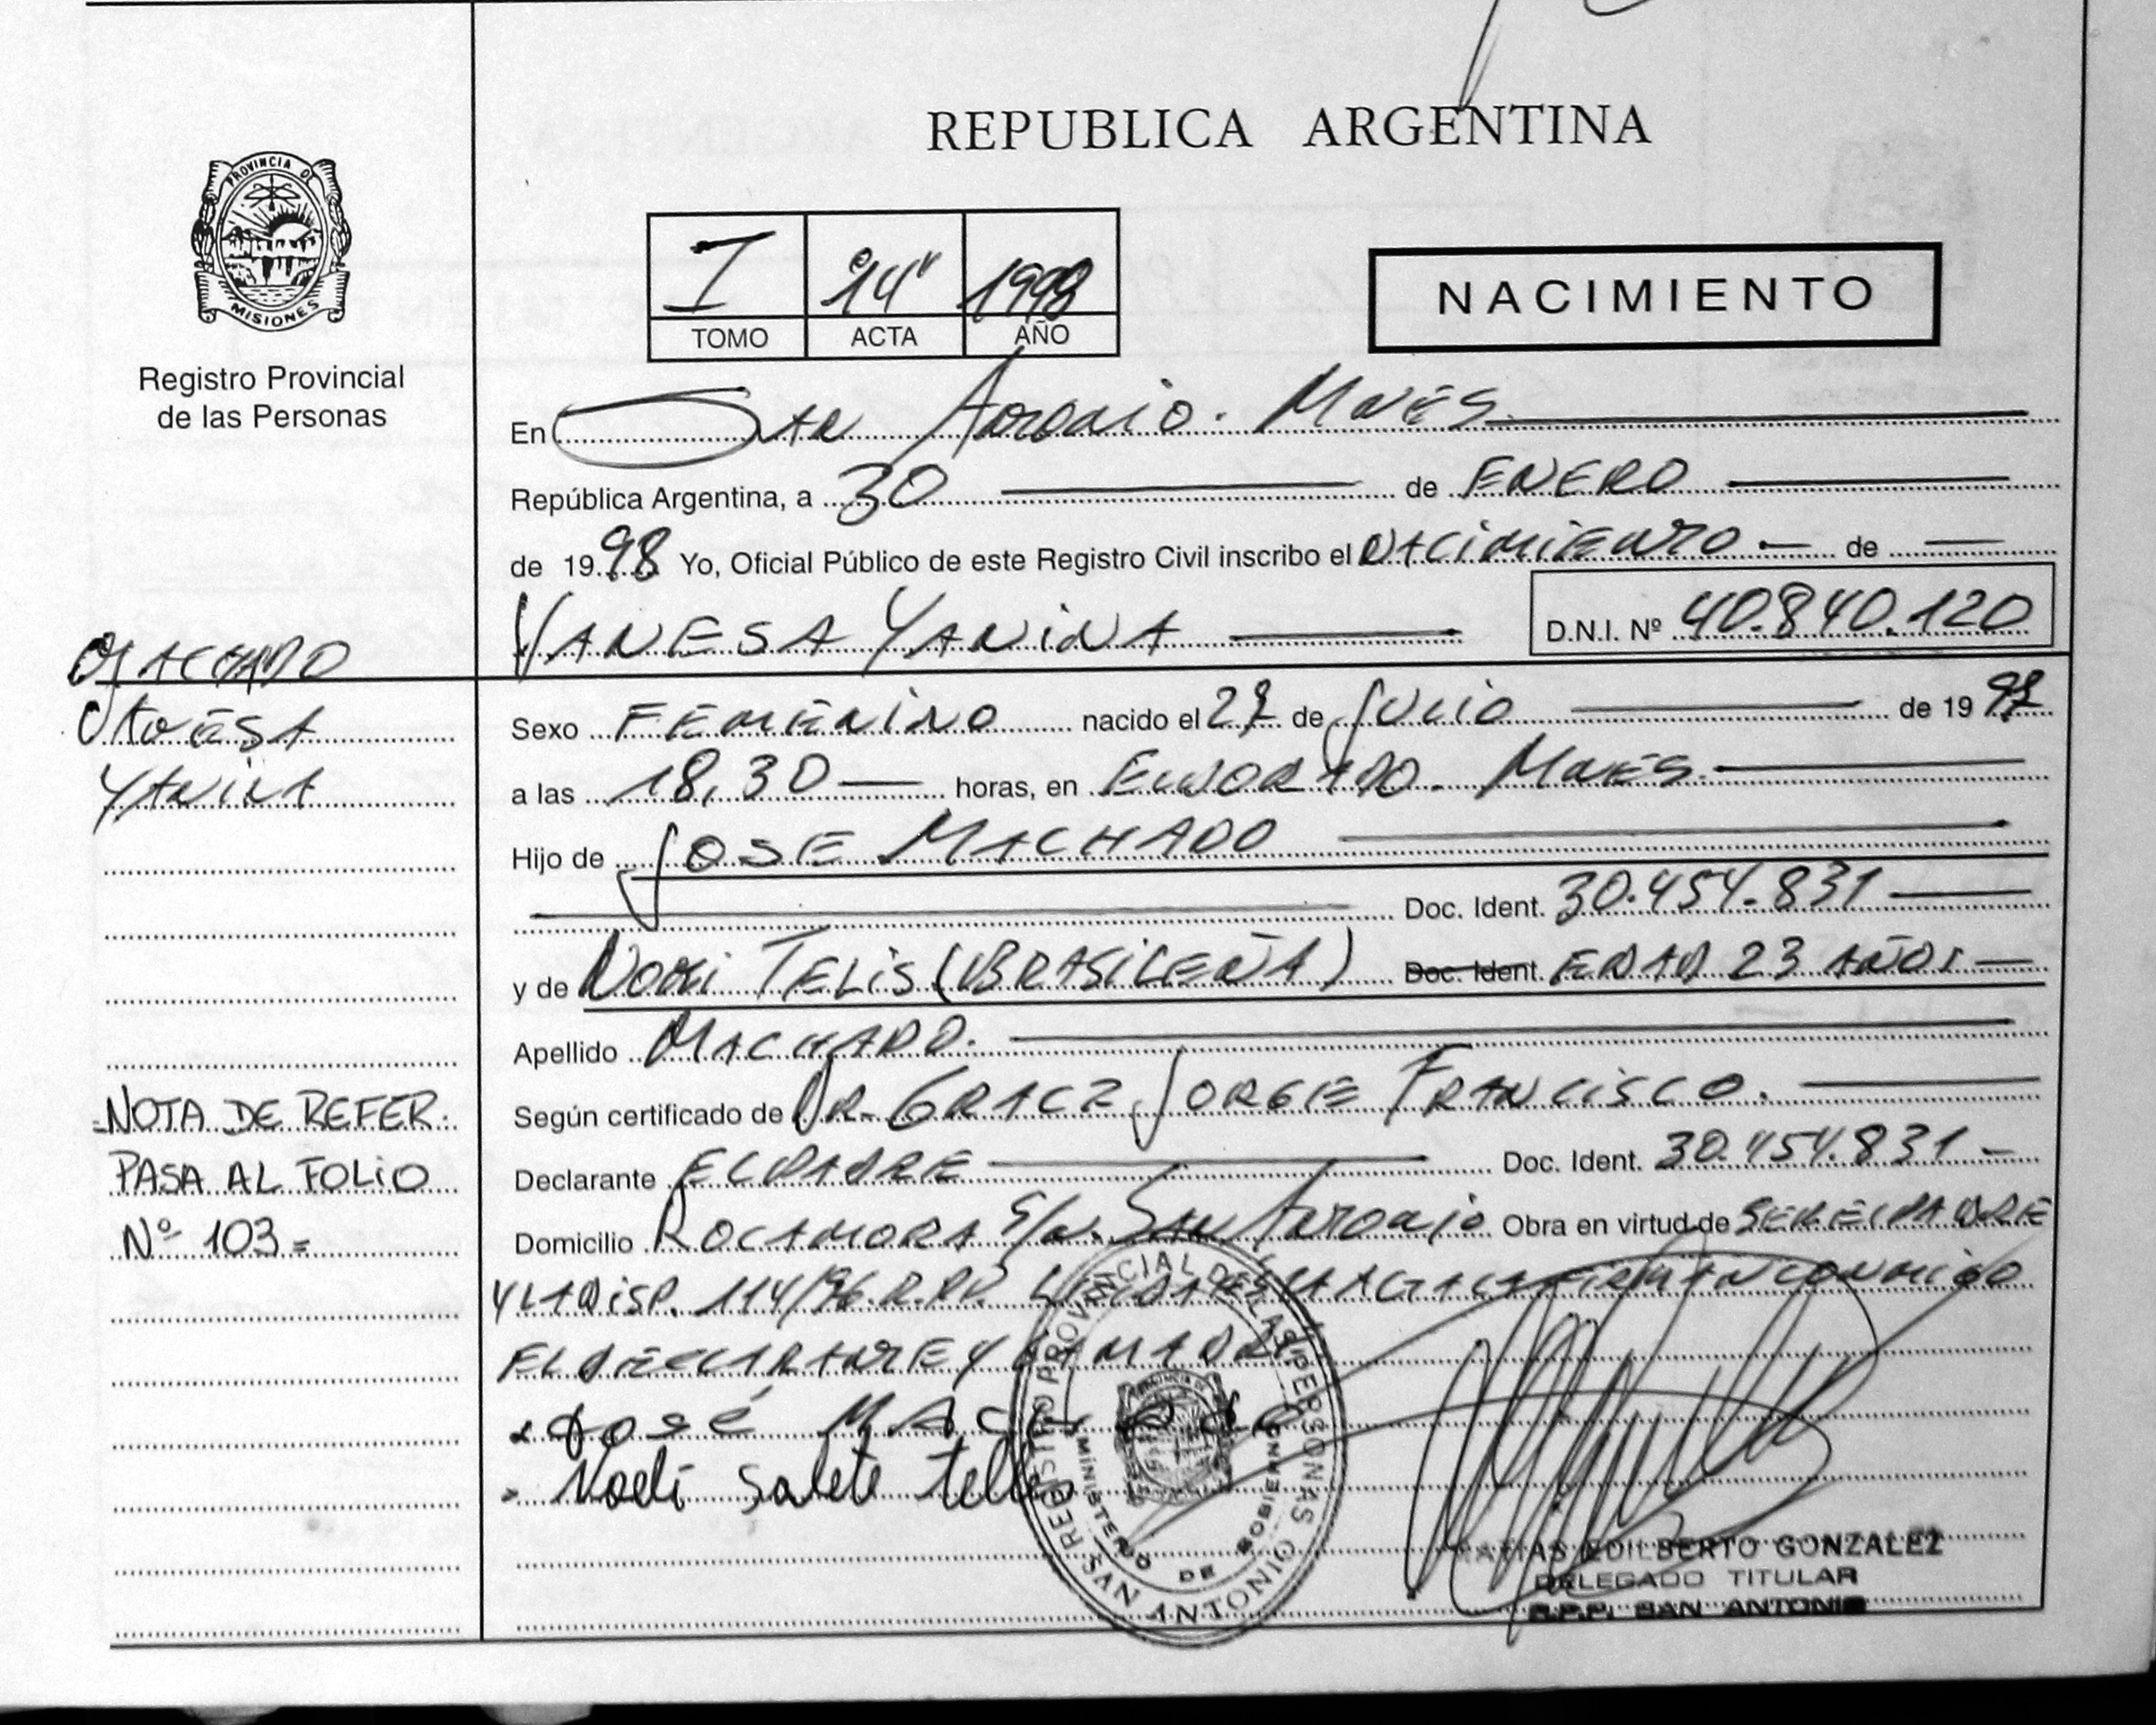 REPUBLICA ARGENTINA
PROVINCIA DE
MISIONES
Registro Provincial
de las Personas
I 14 1998
TOMO ACTA AÑO
NACIMIENTO
En San Antonio. Mnes
República Argentina, a 30 de ENERO
de 1998 Yo, Oficial Público de este Registro Civil inscribo el NACIMIENTO de
VANESA YANINA D.N.I. Nº 40.840.120
MACHADO
VANESA
YANINA
Sexo FEMENINO nacido el de JULIO de 19
a las 18,30 horas, en ELDORADO. MNES.
Hijo de JOSE MACHADO
Doc. Ident. 30.454.831
y de TELIS (BRASILEÑA) Doc. Ident. EDAD 23 AÑOS
Apellido MACHADO.
Según certificado de DR. JORGE FRANCISCO.
Declarante EL PADRE Doc. Ident. 30.454.831
Domicilio ROCAMORA S/N. SAN ANTONIO Obra en virtud de SER EL PADRE
Y LA DISP. 114/96. R.P.P. LEIDA EL ACTA LA FIRMAN CONMIGO
EL DECLARANTE Y LA MADRE
José MACHADO
Noeli Salete Telles
NOTA DE REFER.
PASA AL FOLIO
Nº 103=
REGISTRO PROVINCIAL DE LAS PERSONAS
MINISTERIO DE GOBIERNO
SAN ANTONIO
MATIAS EDILBERTO GONZALEZ
DELEGADO TITULAR
R.P.P. SAN ANTONIO